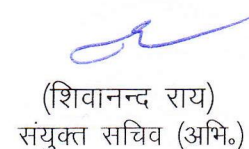 (शिवानन्द राय)
संयुक्त सचिव (अभि॰)